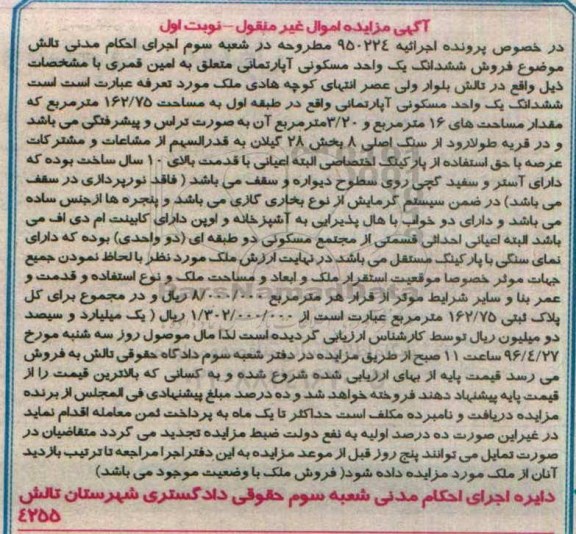 آگهی مزایده اموال غیر منقول – نوبت اول
در خصوص پرونده اجرائیه ۹۵۰۲۲۴ مطروحه در شعبه سوم اجرای احکام مدنی تالش
موضوع فروش ششدانگ یک واحد مسکونی آپارتمانی متعلق به امین قمری با مشخصات
ذیل واقع در تالش بلوار ولی عصر انتهای کوچه هادی ملک مورد تعرفه عبارت است است
ششدانگ یک واحد مسکونی آپارتمانی واقع در طبقه اول به مساحت ۱۶۲/۷۵ مترمربع که
مقدار مساحت های ۱۶ مترمربع و ۳/۲۰مترمربع آن به صورت تراس و پیشرفتگی می باشد
و در قریه طولارود از سنگ اصلی ۸ بخش ۲۸ گیلان به قدرالسهم از مشاعات و مشترکات
عرصه با حق استفاده از پارکینگ اختصاصی البته اعیانی با قدمت بالای ۱۰ سال ساخت بوده که
دارای آستر و سفید گچی روی سطوح دیواره و سقف می باشد ( فاقد نورپردازی در سقف
می باشد) در ضمن سیستم گرمایش از نوع بخاری گازی می باشد و پنجره ها ازجنس ساده
می باشد و دارای دو خواب با هال پذیرایی به آشپزخانه و اوپن دارای کابینت ام دی اف می
باشد البته اعیانی احداثی قسمتی از مجتمع مسکونی دو طبقه ای (دو واحدی) بوده که دارای
نمای سنگی با پارکینگ مستقل می باشد در نهایت ارزش ملک مورد نظر با لحاظ نمودن جمیع
جهات موثر خصوصا موقعیت استقرار ملک و ابعاد و مساحت ملک و نوع استفاده و قدمت و
عمر بنا و سایر شرایط موثر از قرار هر مترمربع ۸/۰۰۰/۰۰۰ ریال و در مجموع برای کل
پلاک ثبتی ۱۶۲/۷۵ مترمربع عبارت است از ۱/۳۰۲/۰۰۰/۰۰۰ ریال ( یک میلیارد و سیصد
دو میلیون ریال توسط کارشناس ارزیابی گردیده است لذا مال موصول روز سه شنبه مورخ
۹۶/۴/۲۷ ساعت ۱۱ صبح از طریق مزایده در دفتر شعبه سوم دادگاه حقوقی تالش به فروش
می رسد قیمت پایه از بهای ارزیابی شده شروع شده و به کسانی که بالاترین قیمت را از
قیمت پایه پیشنهاد دهند فروخته خواهد شد و ده درصد مبلغ پیشنهادی فی المجلس از برنده
مزایده دریافت و نامبرده مکلف است حداکثر تا یک ماه به پرداخت ثمن معامله اقدام نماید
در غیراین صورت ده درصد اولیه به نفع دولت ضبط مزایده تجدید می گردد متقاضیان در
صورت تمایل می توانند پنج روز قبل از موعد مزایده به این دفتراجرا مراجعه تا ترتیب بازدید
آنان از ملک مورد مزایده داده شود( فروش ملک با وضعیت موجود می باشد)
دایره اجرای احکام مدنی شعبه سوم حقوقی دادگستری شهرستان تالش
۴۲۵۵